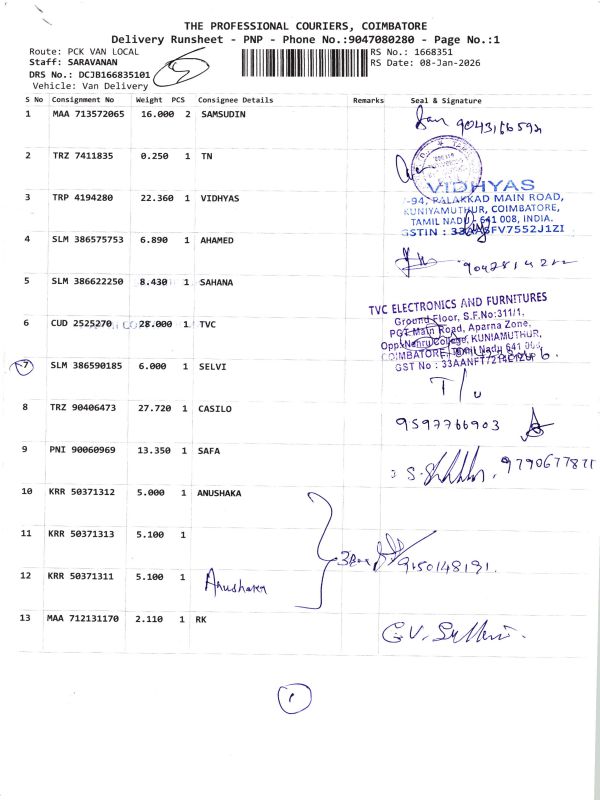 THE PROFESSIONAL COURIERS, COIMBATORE
Delivery Runsheet - PNP - Phone No.:9047080280 - Page No.:1
Route: PCK VAN LOCAL
RS No.: 1668351
Staff: SARAVANAN
RS Date: 08-Jan-2026
DRS No.: DCJB166835101
Vehicle: Van Delivery
S No Consignment No Weight PCS Consignee Details Remarks Seal & Signature
1 MAA 713572065 16.000 2 SAMSUDIN
2 TRZ 7411835 0.250 1 TN
3 TRP 4194280 22.360 1 VIDHYAS
VIDHYAS
-94, PALAKKAD MAIN ROAD,
KUNIYAMUTHUR, COIMBATORE,
TAMIL NADU - 641 008, INDIA.
GSTIN :
4 SLM 386575753 6.890 1 AHAMED
5 SLM 386622250 8.430 1 SAHANA
6 CUD 2525270 28.000 1 TVC
TVC ELECTRONICS AND FURNITURES
Ground Floor, S.F.No:311/1,
PGT Main Road, Aparna Zone,
Opp.Nehru College, KUNIAMUTHUR,
COIMBATORE, Tamil Nadu 641
GST No :
7 SLM 386590185 6.000 1 SELVI
T/u
8 TRZ 90406473 27.720 1 CASILO
9597766903
9 PNI 90060969 13.350 1 SAFA
9790677871
10 KRR 50371312 5.000 1 ANUSHAKA
11 KRR 50371313 5.100 1
9150148191.
12 KRR 50371311 5.100 1
Anushaka
13 MAA 712131170 2.110 1 RK
1